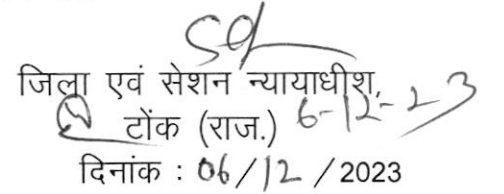 Sd/
जिला एवं सेशन न्यायाधीश,
टोंक (राज.) 6-12-23
दिनांक : 06/12/2023